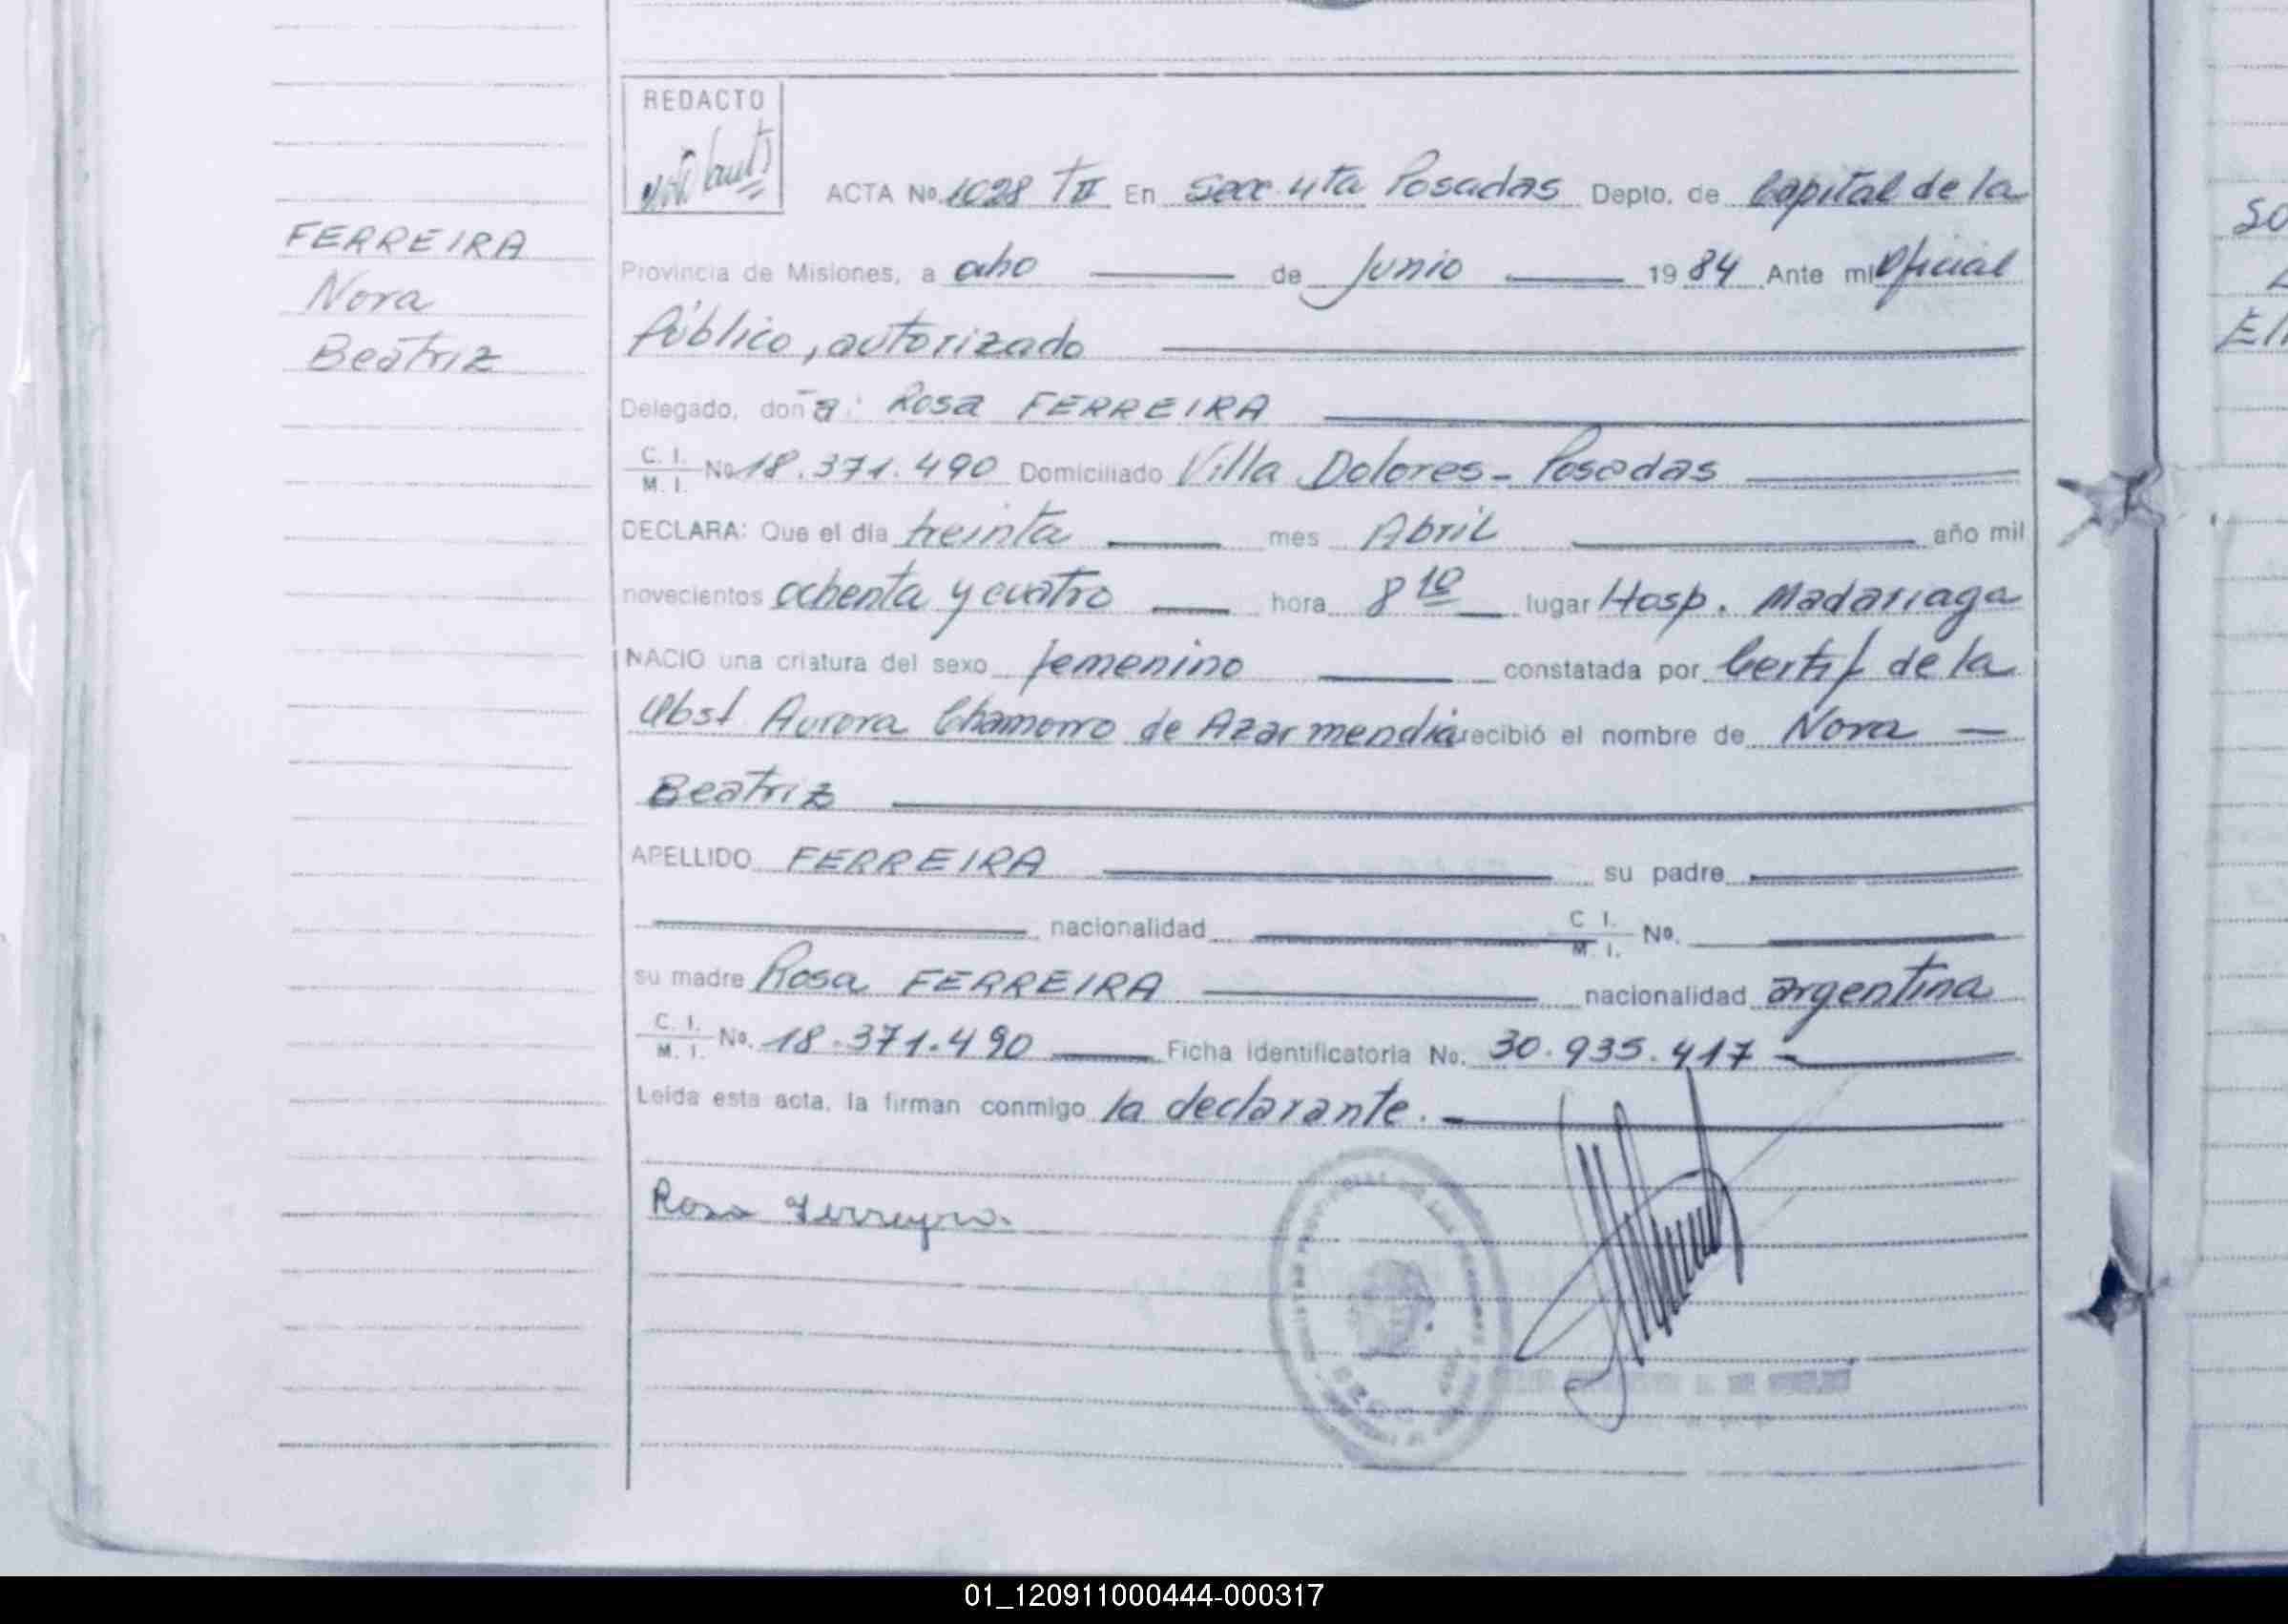 REDACTO
ACTA No. 1028 TII En Secc 4ta Posadas Depto. de Capital de la
FERREIRA
Nora
Beatriz
Provincia de Misiones, a ocho de Junio 1984 Ante mi Oficial
Público, autorizado
Delegado, doña: Rosa FERREIRA
C. I. M. I. No 18.371.490 Domiciliado Villa Dolores - Posadas
DECLARA: Que el día treinta mes Abril año mil
novecientos ochenta y cuatro hora 8 10 lugar Hosp. Madariaga
NACIO una criatura del sexo femenino constatada por Certif de la
Obst Aurora Chamorro de Azarmendia recibió el nombre de Nora
Beatriz
APELLIDO FERREIRA su padre
nacionalidad C I. M I. No.
su madre Rosa FERREIRA nacionalidad argentina
C. I. M. I. No. 18.371.490 Ficha identificatoria No. 30.935.417
Leída esta acta, la firman conmigo la declarante.
Rosa Ferreyra.
01_120911000444-000317